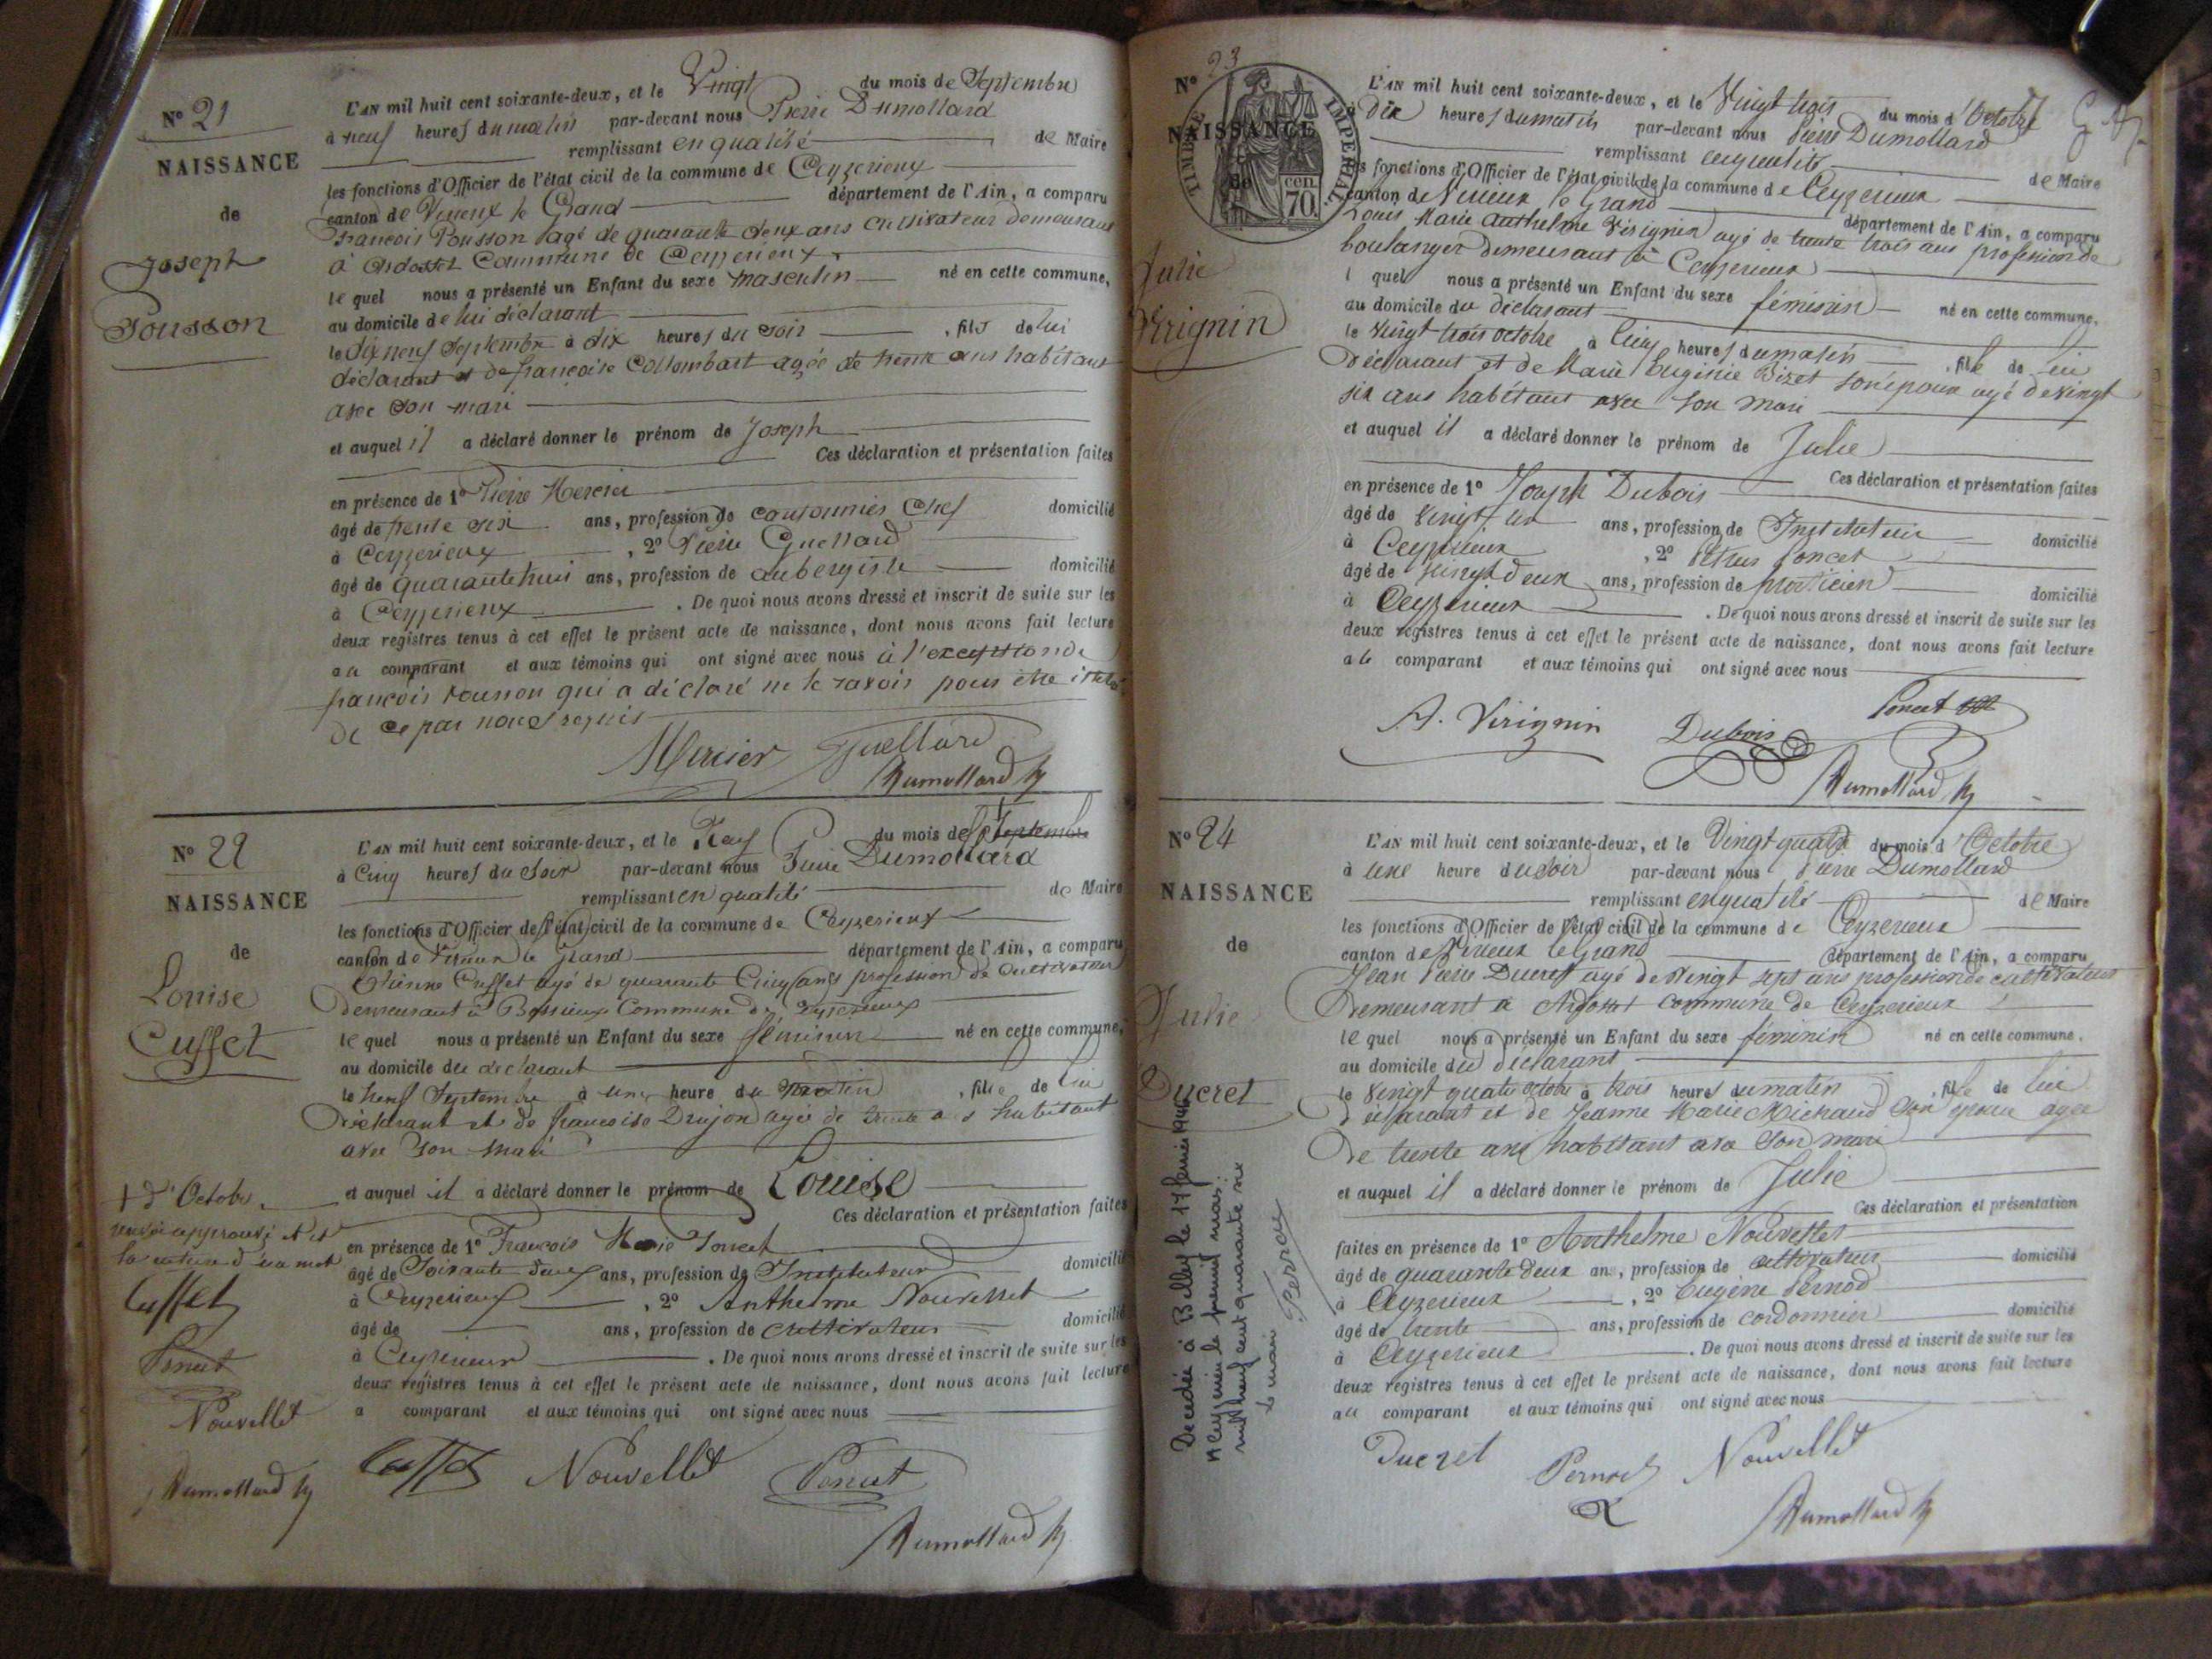 N° 21
NAISSANCE
de
Joseph
Pousson
L'AN mil huit cent soixante-deux, et le Vingt du mois de Septembre
à neuf heures du matin par-devant nous Pierre Dumollard
remplissant en qualité de Maire
les fonctions d'Officier de l'état civil de la commune de Ceyzerieux
canton de Virieux le Grand département de l'Ain, a comparu
François Pousson agé de quarante deux ans cultivateur demeurant
à Ardosset Commune de Ceyzerieux
le quel nous a présenté un Enfant du sexe masculin né en cette commune,
au domicile de lui déclarant
le dix neuf Septembre à dix heures du soir , fils de lui
déclarant et de françoise Collombart agée de trente ans habitant
avec son mari
et auquel il a déclaré donner le prénom de Joseph
Ces déclaration et présentation faites
en présence de 1° Pierre Mercier
âgé de trente six ans, profession de cantonnier Chef domicilié
à Ceyzerieux , 2° Pierre Guellard
âgé de quarante huit ans, profession de aubergiste domicilié
à Ceyzerieux . De quoi nous avons dressé et inscrit de suite sur les
deux registres tenus à cet effet le présent acte de naissance, dont nous avons fait lecture
au comparant et aux témoins qui ont signé avec nous à l'exception de
françois Pousson qui a déclaré ne le savoir pour être illétré
de ce par nous requis
Mercier Guellard
Dumollard
N° 22
NAISSANCE
de
Louise
Cuffet
L'AN mil huit cent soixante-deux, et le Neuf du mois de Septembre
à Cinq heures du Soir par-devant nous Pierre Dumollard
remplissant en qualité de Maire
les fonctions d'Officier de l'état civil de la commune de Ceyzerieux
canton de Virieux le Grand département de l'Ain, a comparu
Etienne Cuffet agé de quarante Cinq ans profession de cultivateur
demeurant à Bossieux Commune de Ceyzerieux
le quel nous a présenté un Enfant du sexe féminin né en cette commune,
au domicile du déclarant
le neuf Septembre à une heure du matin , fille de lui
Déclarant et de françoise Drujon agée de trente ans habitant
avec son mari
et auquel il a déclaré donner le prénom de Louise
Ces déclaration et présentation faites
en présence de 1° François Marie Poncet
âgé de Soixante deux ans, profession de Instituteur domicilié
à Ceyzerieux , 2° Anthelme Nouvellet
âgé de ans, profession de cultivateur domicilié
à Ceyzerieux . De quoi nous avons dressé et inscrit de suite sur les
deux registres tenus à cet effet le présent acte de naissance, dont nous avons fait lecture
a comparant et aux témoins qui ont signé avec nous
+ d'Octobre
renvoi approuvé et
la rature d'un mot
Cuffet
Poncet
Nouvellet
Dumollard
Cuffet Nouvellet Poncet
Dumollard
N° 23
NAISSANCE
de
TIMBRE IMPERIAL
70 cen.
Julie
Virignin
L'AN mil huit cent soixante-deux, et le Vingt trois du mois d'Octobre
à dix heures du matin par-devant nous Pierre Dumollard
remplissant en qualité de Maire
les fonctions d'Officier de l'état civil de la commune de Ceyzerieux
canton de Virieux le Grand département de l'Ain, a comparu
Louis Marie Anthelme Virignin agé de trente trois ans profession de
boulanger demeurant à Ceyzerieux
l quel nous a présenté un Enfant du sexe féminin né en cette commune,
au domicile du déclarant
le vingt trois octobre à cinq heures du matin , fille de lui
Déclarant et de Marie Eugénie Bizet son épouse agé de vingt
six ans habitant avec son mari
et auquel il a déclaré donner le prénom de Julie
Ces déclaration et présentation faites
en présence de 1° Joseph Dubois
âgé de vingt un ans, profession de Instituteur domicilié
à Ceyzerieux , 2° Petrus Poncet
âgé de vingt deux ans, profession de praticien domicilié
à Ceyzerieux . De quoi nous avons dressé et inscrit de suite sur les
deux registres tenus à cet effet le présent acte de naissance, dont nous avons fait lecture
a le comparant et aux témoins qui ont signé avec nous
A. Virignin Dubois Poncet
Dumollard
N° 24
NAISSANCE
de
Julie
Ducret
L'AN mil huit cent soixante-deux, et le Vingt quatre du mois d'Octobre
à une heure du Soir par-devant nous Pierre Dumollard
remplissant en qualité de Maire
les fonctions d'Officier de l'état civil de la commune de Ceyzerieux
canton de Virieux le Grand département de l'Ain, a comparu
Jean Pierre Ducret agé de vingt sept ans profession de cultivateur
Demeurant à Ardosset commune de Ceyzerieux
le quel nous a présenté un Enfant du sexe féminin né en cette commune,
au domicile du déclarant
le vingt quatre octobre à trois heures du matin , fille de lui
déclarant et de Jeanne Marie Michaud son épouse agée
De trente ans habitant avec son mari
et auquel il a déclaré donner le prénom de Julie
Ces déclaration et présentation
faites en présence de 1° Anthelme Nouvellet
âgé de quarante deux ans, profession de cultivateur domicilié
à Ceyzerieux , 2° Eugène Pernod
âgé de trente ans, profession de cordonnier domicilié
à Ceyzerieux . De quoi nous avons dressé et inscrit de suite sur les
deux registres tenus à cet effet le présent acte de naissance, dont nous avons fait lecture
au comparant et aux témoins qui ont signé avec nous
Décédée à Belley le 17 février 1946
à Ceyzérieu le premier mars
mil neuf cent quarante six
Le maire
Perreau
Ducret Pernod Nouvellet
Dumollard